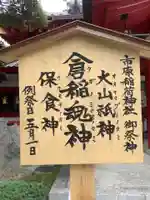 市原稲荷神社 御祭神
大山祇神
倉稲魂神
保食神
例祭日 五月一日